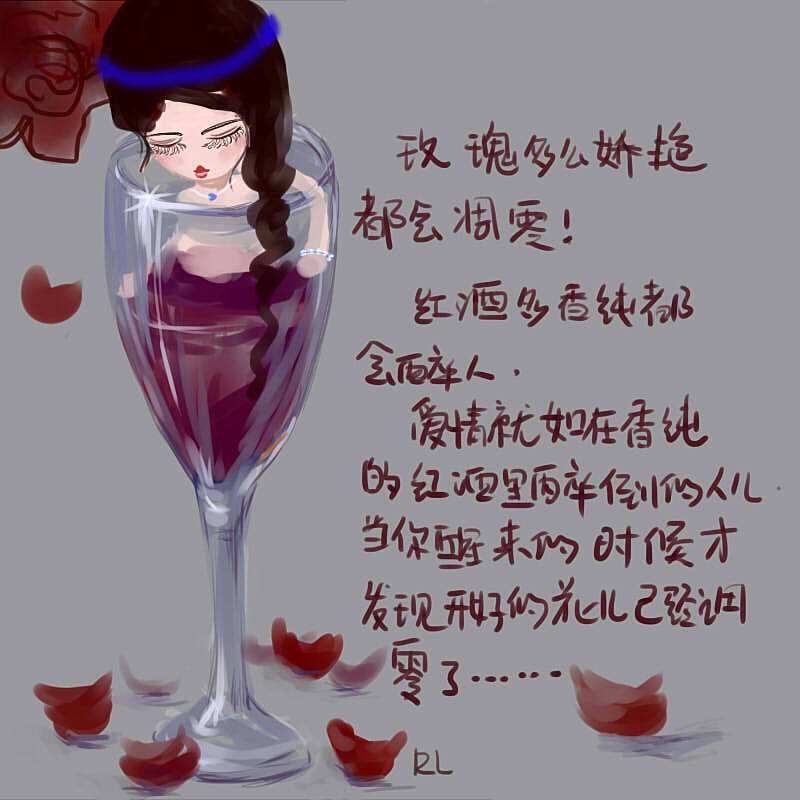 玫瑰多么娇艳
都会凋零!
红酒多香纯都
会醉人.
爱情就如在香纯
的红酒里醉倒的人儿.
当你醒来的时候才
发现开好的花儿已经调
零了……
RL